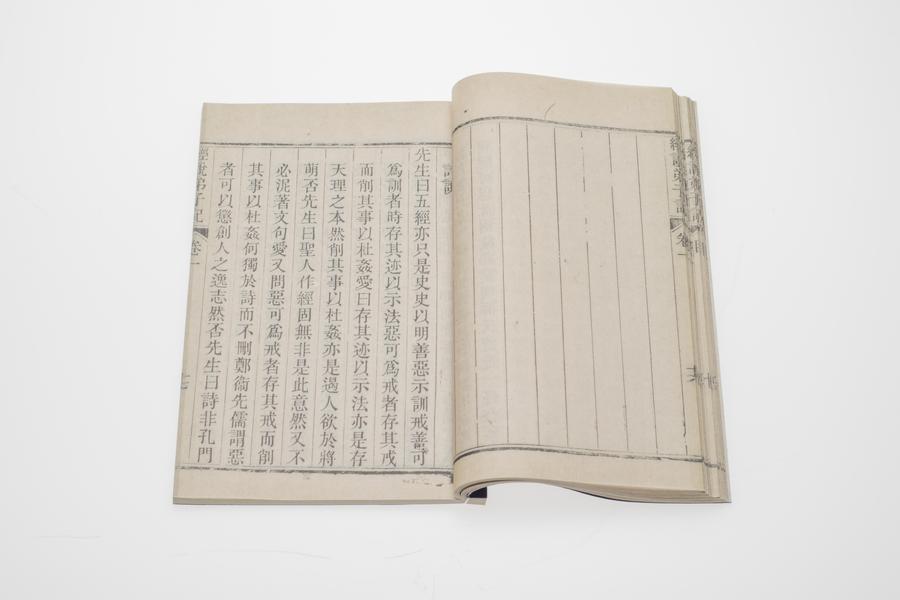 先生曰五經亦只是史史以明善惡示訓戒善可
爲訓者時存其迹以示法惡可爲戒者存其戒
而削其事以杜姦愛曰存其迹以示法亦是存
天理之本然削其事以杜姦亦是遏人欲於將
萌否先生曰聖人作經固無非是此意然又不
必泥著文句愛又問惡可爲戒者存其戒而削
其事以杜姦何獨於詩而不刪鄭衞先儒謂惡
者可以懲創人之逸志然否先生曰詩非孔門
經說弟子記 卷一